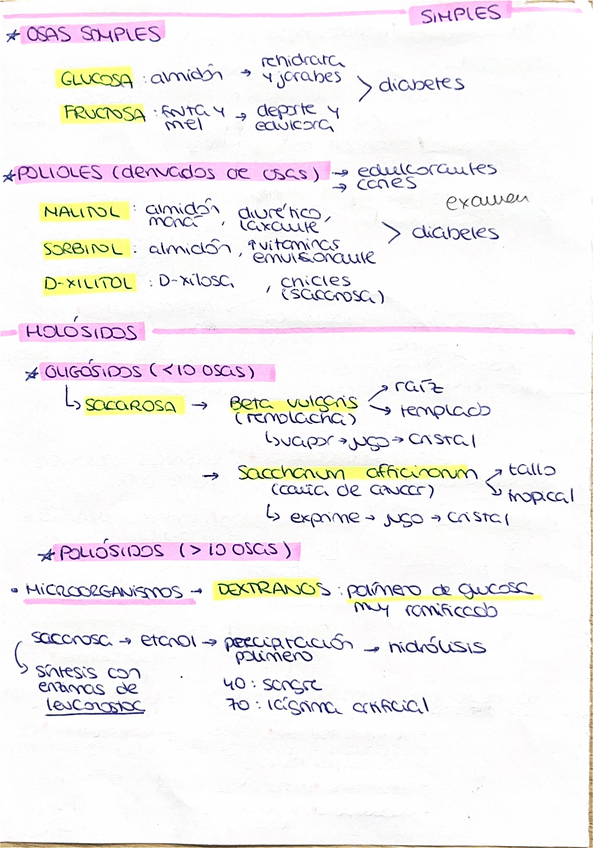 SIMPLES
* OSAS SIMPLES
GLUCOSA : almidón → rehidrata y jarabes
FRUCTOSA : fruta y miel → deporte y edulcora
> diabetes
* POLIOLES (derivados de osas) → edulcorantes
→ caries
examen
MALITOL : almidón maná , diurético, laxante
SORBITOL : almidón , ↑vitaminas emulsionante
> diabetes
D-XILITOL : D-xilosa , chicles (sacarosa)
HOLÓSIDOS
* OLIGÓSIDOS (<10 OSAS)
↳ SACAROSA → Beta vulgaris (remolacha) → raíz
→ templado
↳ vapor → jugo → cristal
→ Saccharum officinarum (caña de azúcar) → tallo
→ tropical
↳ exprime → jugo → cristal
* POLIÓSIDOS (>10 OSAS)
• MICROORGANISMOS → DEXTRANOS : polímero de glucosa
muy ramificado
sacarosa → etanol → precipitación polímero → hidrólisis
síntesis con
enzimas de
leuconostoc
40 : sangre
70 : lágrima artificial